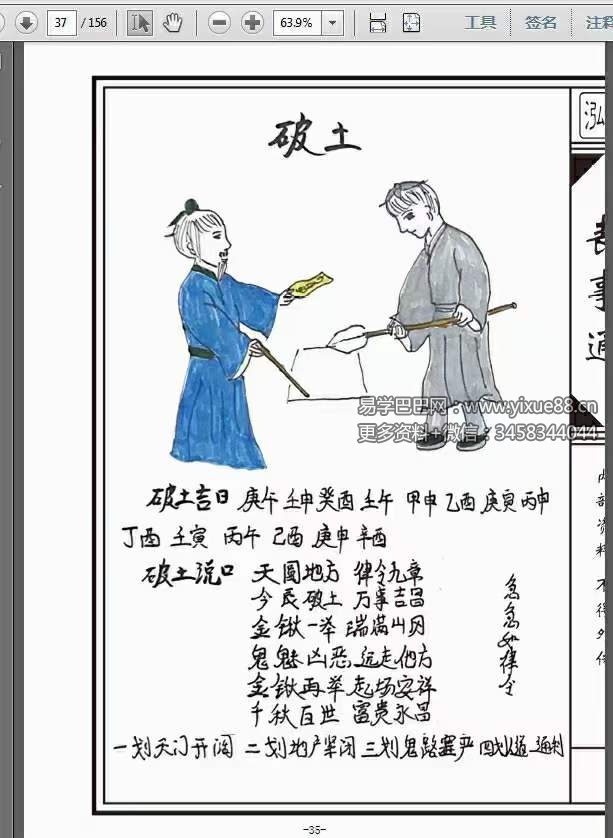 37 / 156
63.9%
工具
签名
注释
破土
泓
丧事通
易学巴巴网:www.yixue88.cn
更多资料+微信:3458344044
内部资料 不得外传
破土吉日 庚午 壬申 癸酉 壬午 甲申 乙酉 庚寅 丙申
丁酉 壬寅 丙午 己酉 庚申 辛酉
破土说口 天圆地方 律令九章
今民破土 万事吉昌
金锹一举 瑞满山冈
鬼魅凶恶 远走他方
金锹再举 起场安祥
千秋百世 富贵永昌
急急如律令
一划天门开阔 二划地户紧闭 三划鬼路塞严 四划人道通利
-35-